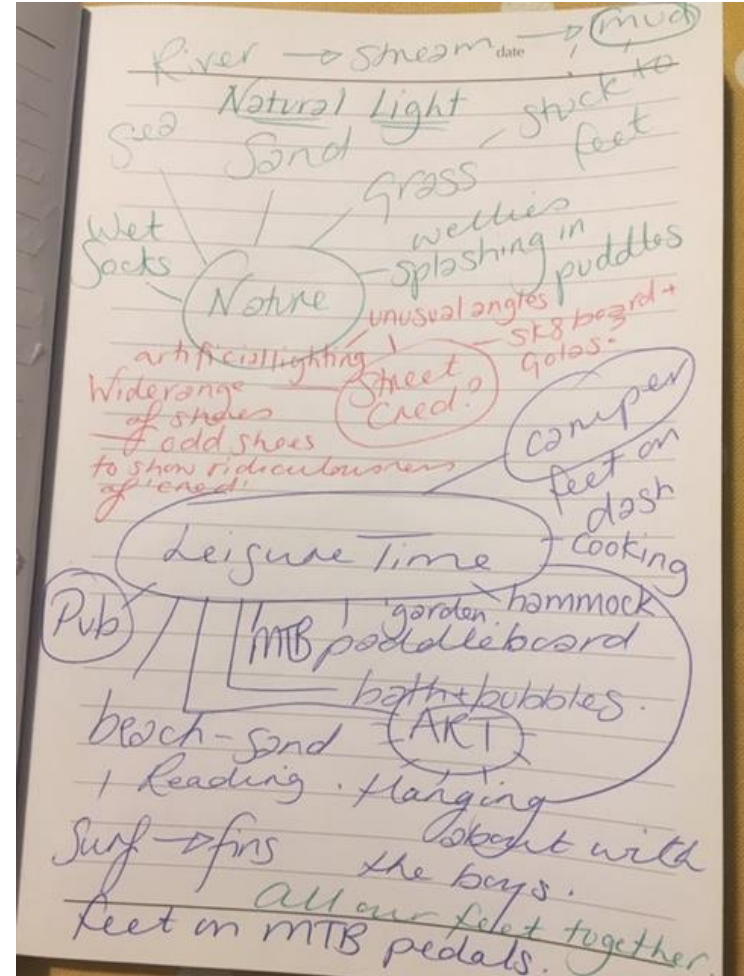 River → stream → mud
date
Natural Light
stuck to
feet
Sea
Sand
Grass
Wet
Socks
wellies
splashing in
puddles
Nature
unusual angles
artificial lighting
sk8 board +
Golas.
Street
Cred?
Wide range
of shoes
odd shoes
to show ridiculousness
of 'cred'
camper
feet on
dash
cooking
Leisure Time
Pub
garden. hammock
MTB paddleboard
bath + bubbles.
beach - sand
ART
+ Reading. Hanging
about with
the boys.
Surf → fins
All our feet together
feet on MTB pedals.